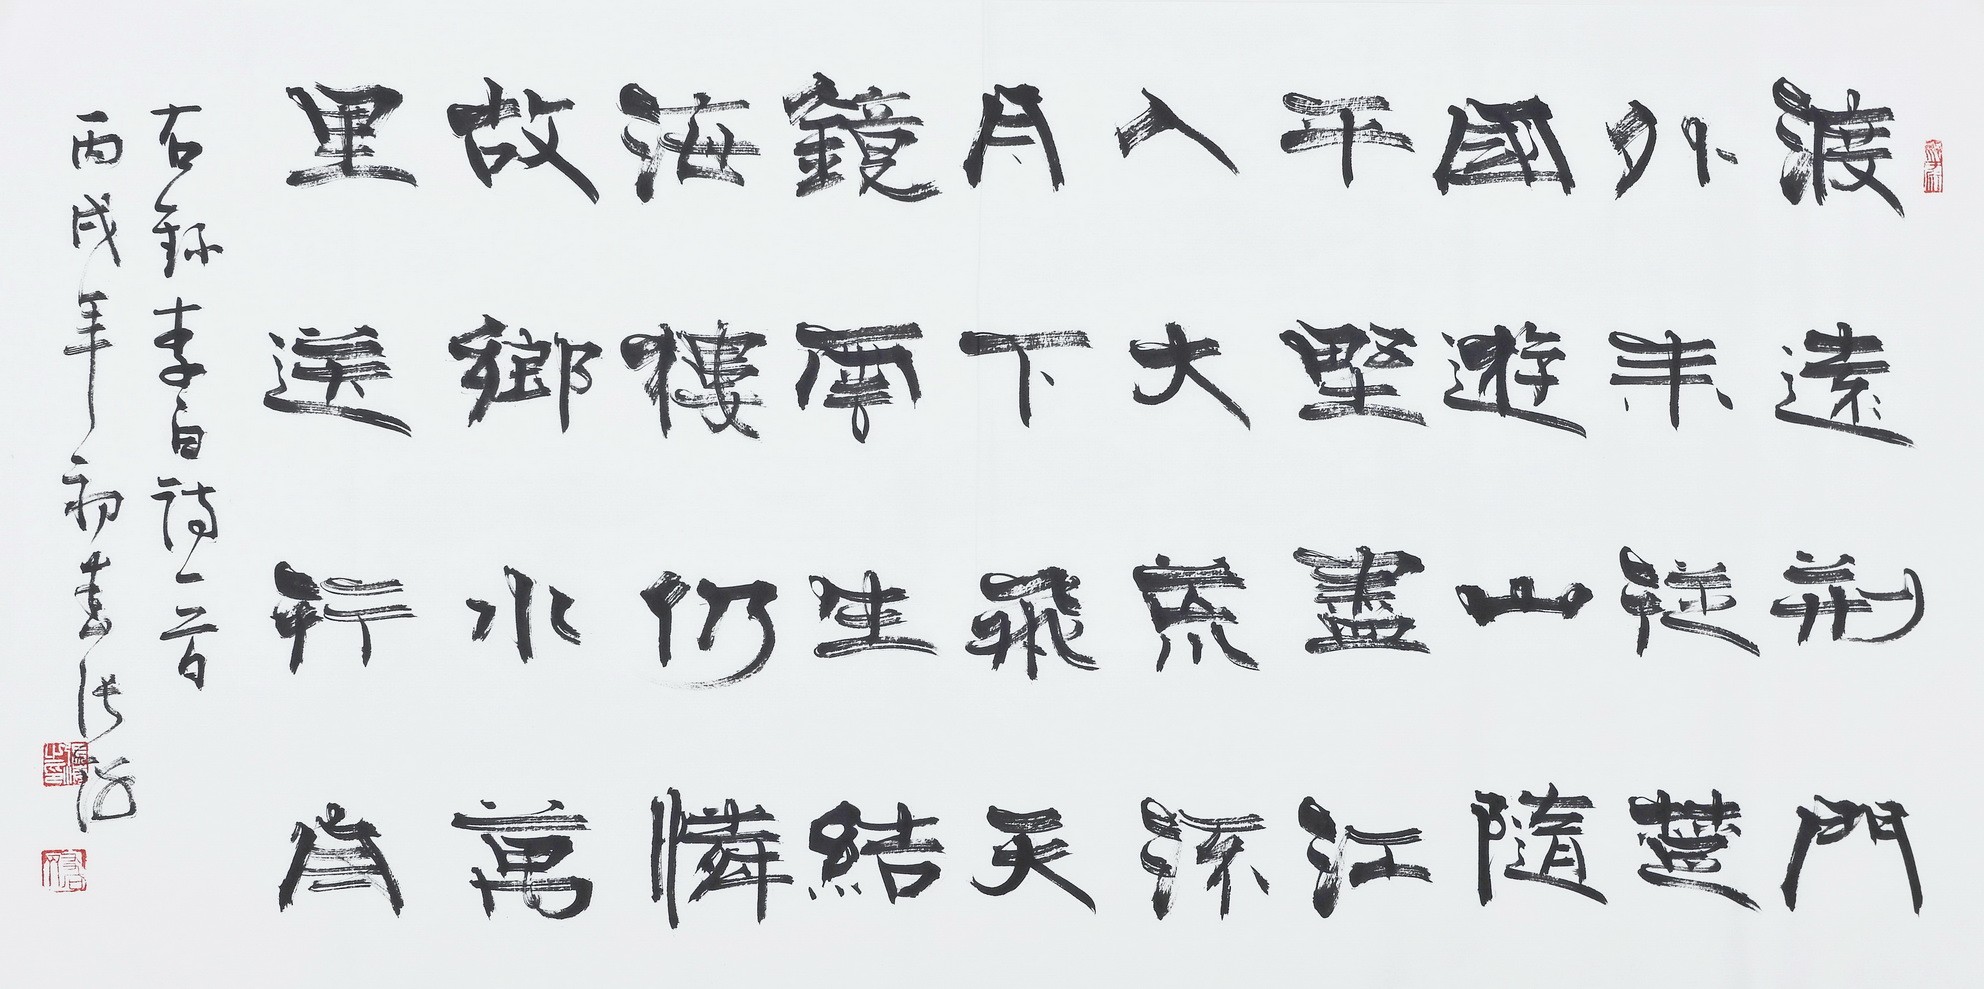 渡遠荊門
外来從楚
國遊山隨
平野盡江
入大荒流
月下飛天
鏡雲生結
海樓仍憐
故鄉水萬
里送行舟
右録李白詩一首
丙戌年初春張